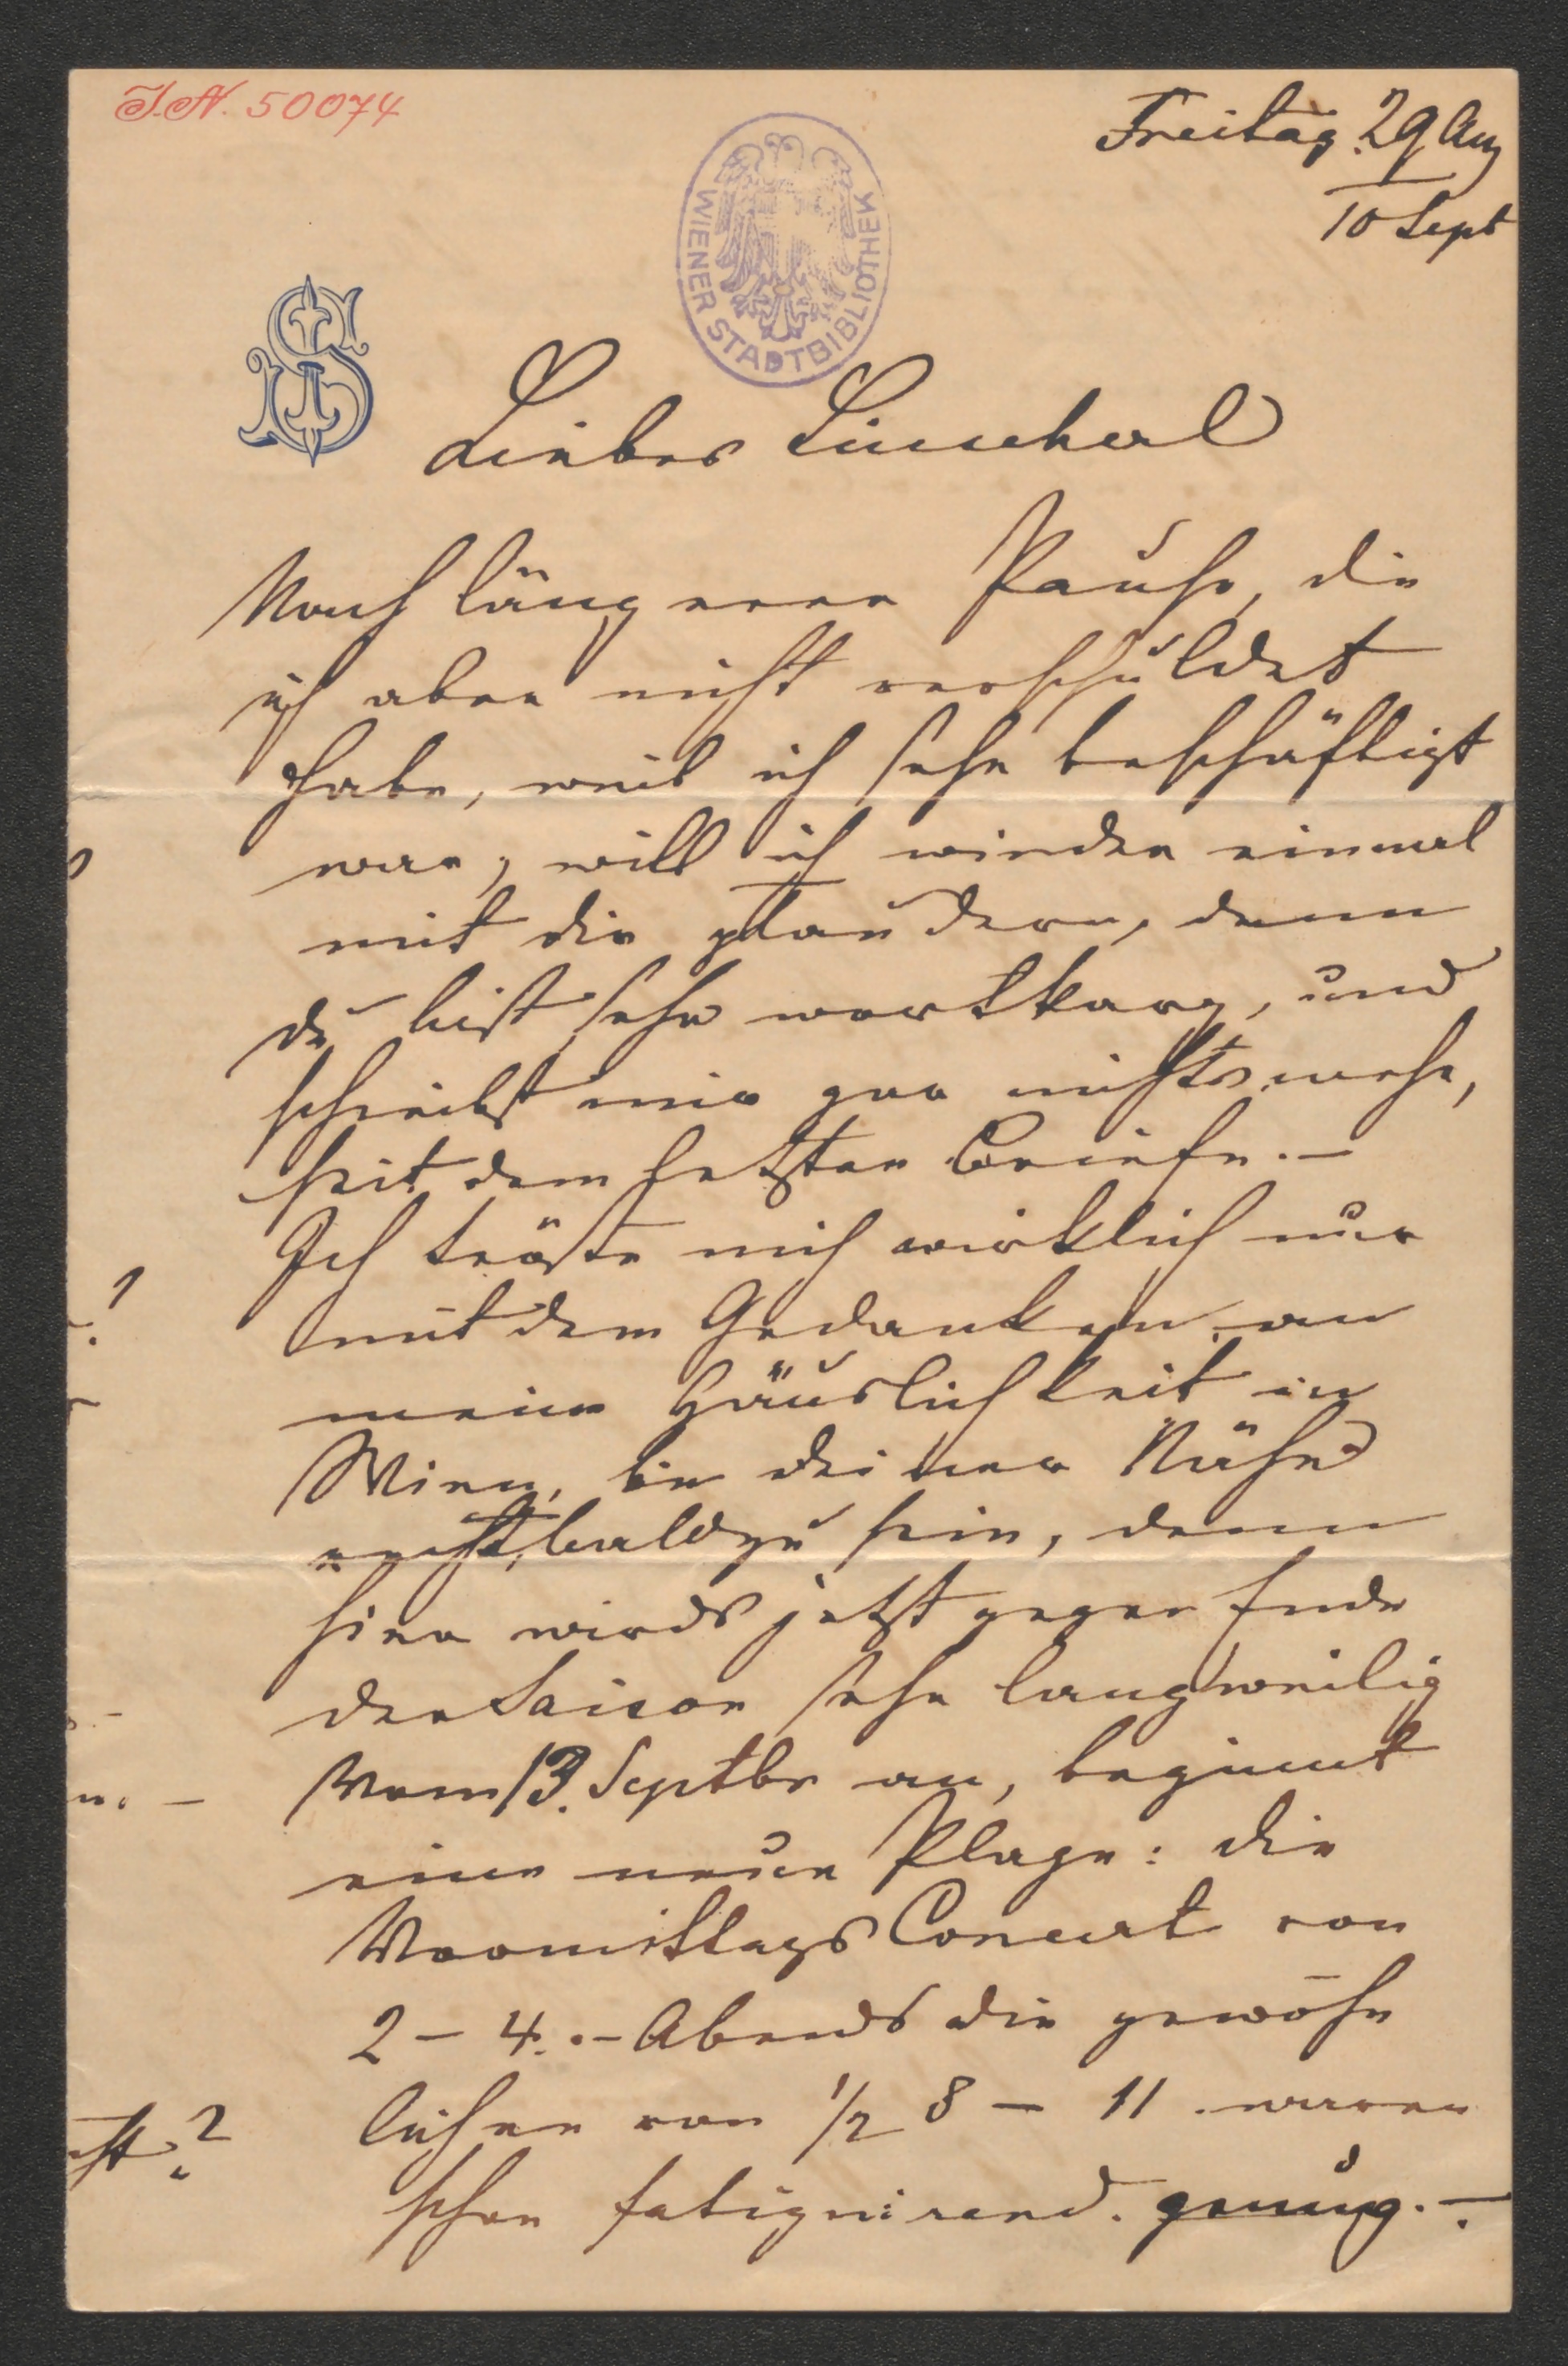 J.N. 50074
Freitag 29 Aug
10 Sept
WIENER STADTBIBLIOTHEK
Liebes Lincherl
Nach längerer Pause, die
ich aber nicht verschuldet
habe, weil ich sehr beschäftigt
war, will ich wieder einmal
mit dir plaudern, denn
du bist sehr wortkarg, und
schreibst mir gar nichts mehr,
seit dem letzten Briefe. –
Ich tröste mich wirklich nur
mit dem Gedanken, an
meine Häuslichkeit in
Wien, in deiner Nähe
recht bald zu sein, denn
hier wirds jetzt gegen Ende
der Saison sehr langweilig
Vom 13. Septbr an, beginnt
eine neue Plage: die
Vormittags Concert von
2 – 4. – Abends die gewöhn
lichen von ½ 8 – 11. waren
schon fatiguirend. genug. –